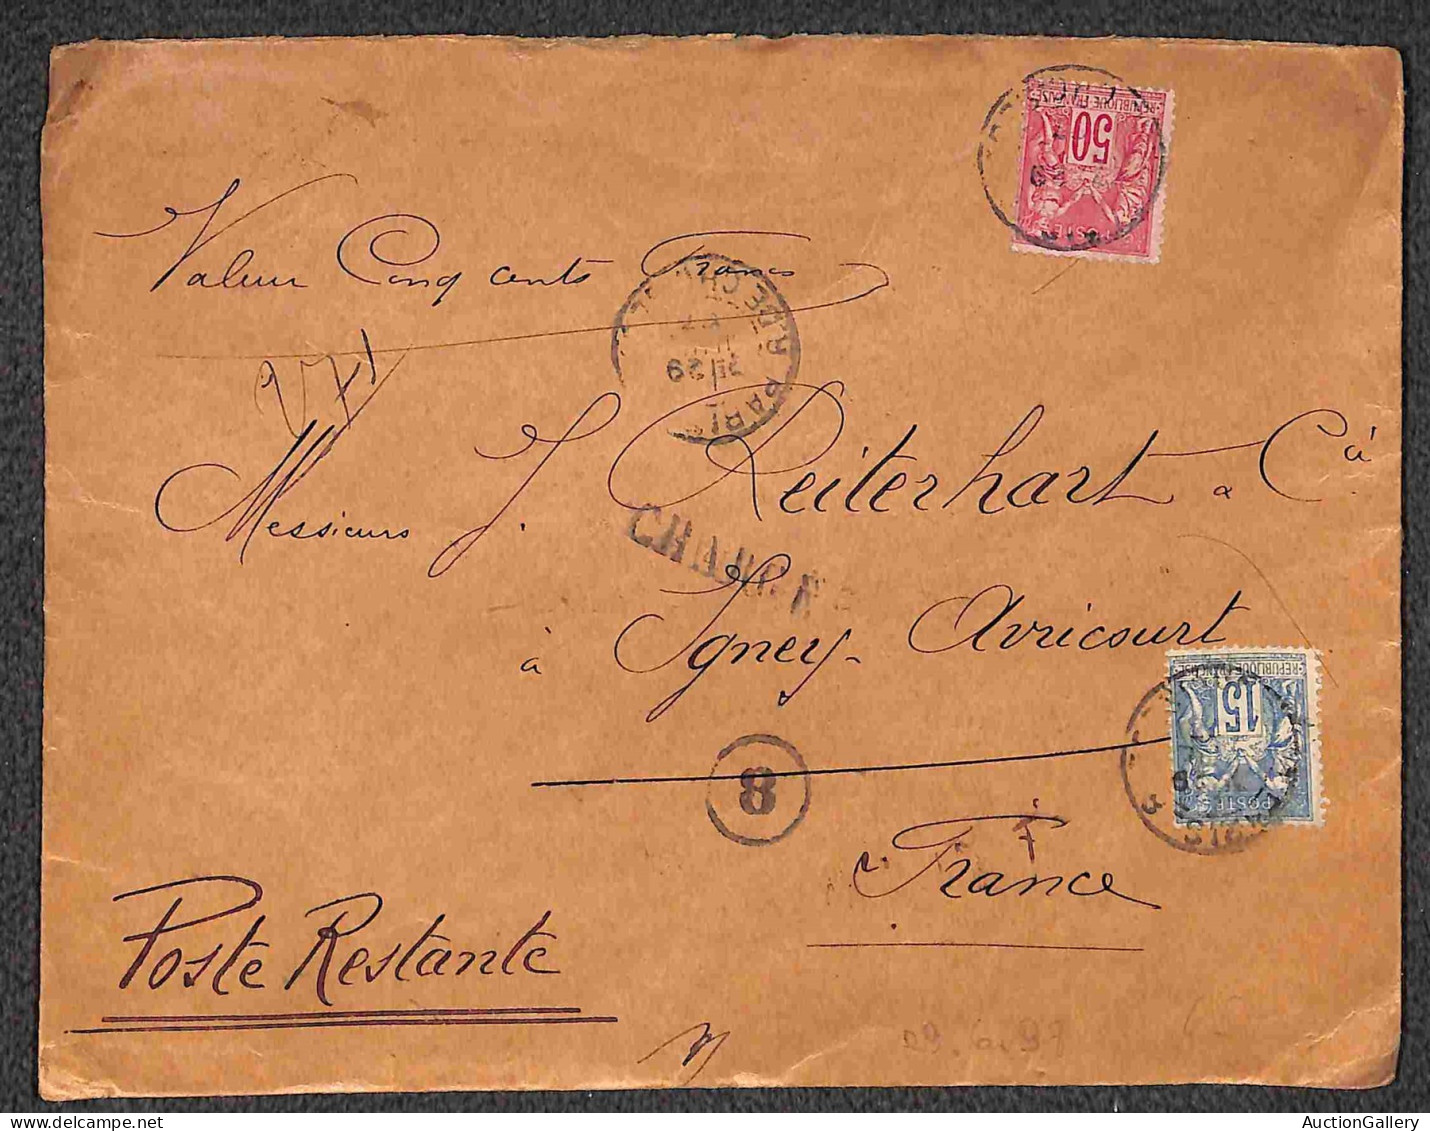 RÉPUBLIQUE FRANÇAISE
50
POSTES
Valeur Cinq cents Francs
271
PARIS
29
Messieurs J. Reiterhart & Cie
CHARGÉ
à Igney-Avricourt
RÉPUBLIQUE FRANÇAISE
15
POSTES
PARIS
8
France
Poste Restante
AuctionGallery